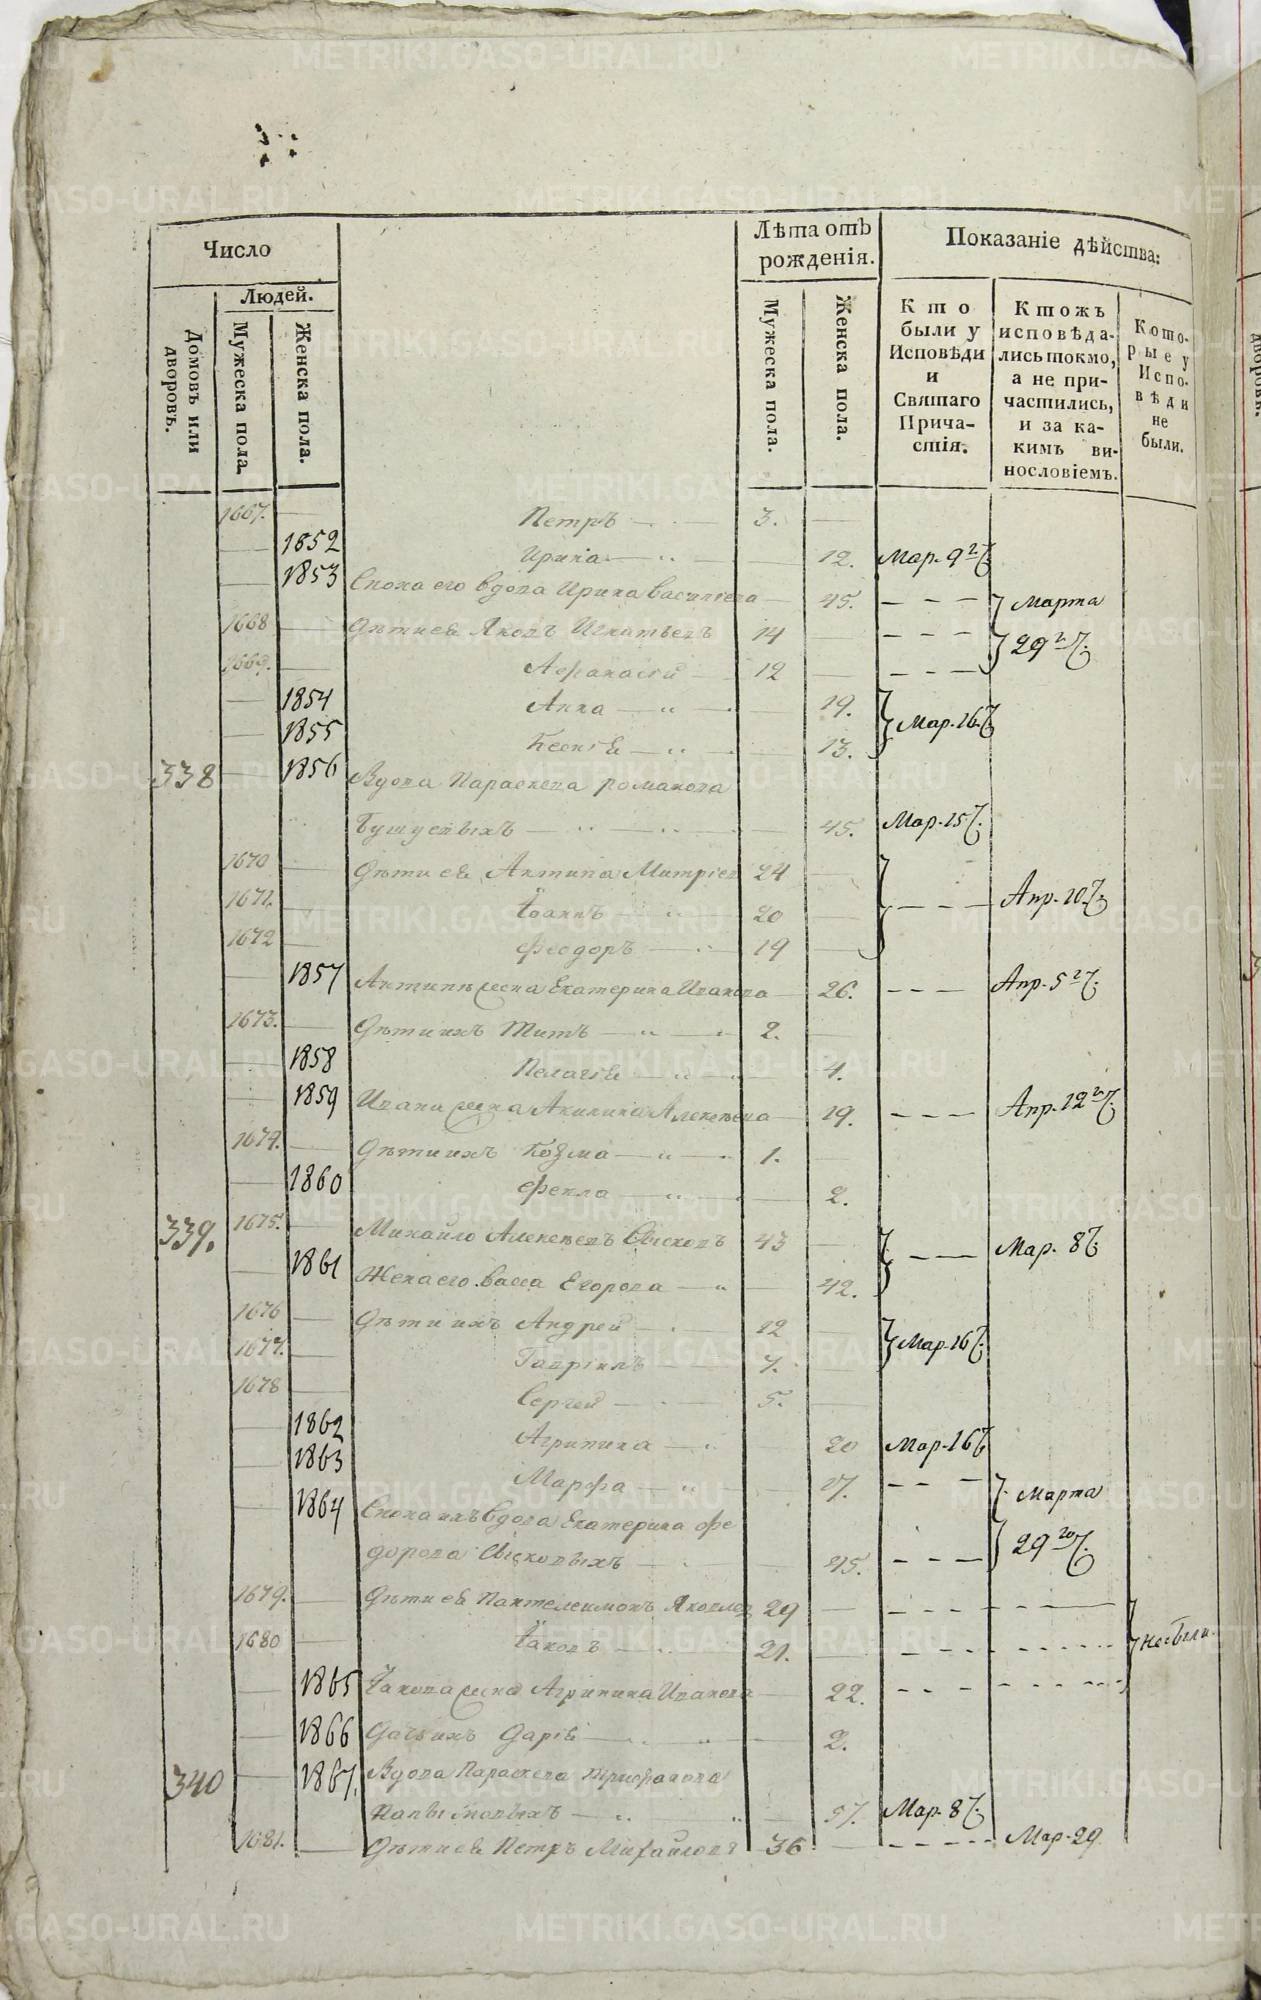 METRIKI.GASO-URAL.RU
Число
Лѣта отъ рожденія.
Показаніе дѣйства:
Людей.
Домовъ или дворовъ.
Мужеска пола.
Женска пола.
Мужеска пола.
Женска пола.
Кто были у Исповѣди и Святаго Причастія.
Ктожъ исповѣдались токмо, а не причастились, и за какимъ винословіемъ.
Которые у Исповѣди не были.
1667. Петръ 3.
1852 Ирина 12. Мар. 9
1853 Сноха его вдова Ирина Василіева 45. Марта
1668 Дѣти ея Яковъ Игнатьевъ 14 29
1669. Афанасій 12
1854 Анна 19. Мар. 16
1855 Ксенія 13.
338 1856 Вдова Параскева Романова
45. Мар. 15
1670 Дѣти ея Антипа Митріев 24
1671. Іоаннъ 20 Апр. 10
1672 Феодоръ 19
1857 Антипы жена Екатерина Иванова 26. Апр. 5
1673. Дѣти ихъ Титъ 2.
1858 Пелагія 4.
1859 Ивана жена Акилина Алексѣева 19. Апр. 12
1674. Дѣти ихъ Козма 1.
1860 Фекла 2.
339. 1675. Михайло Алексѣевъ 43 Мар. 8
1861 Жена его Васса Егорова 42.
1676 Дѣти ихъ Андрей 12 Мар. 16
1677. Гавріилъ 7.
1678 Сергей 5.
1862 Агрипина 20 Мар. 16
1863 Марфа 17.
1864 Сноха ихъ вдова Екатерина Фе Марта
дорова 45. 29
1679. Дѣти ея Пантелеимонъ Яковлев 29
1680 Іаковъ 21. не были
1865 Іакова жена Агрипина Иванова 22.
1866 Дочь ихъ Дарія 2.
340 1867. Вдова Параскева
57. Мар. 8
1681. Дѣти ея Петръ Михайловъ 36 Мар. 29